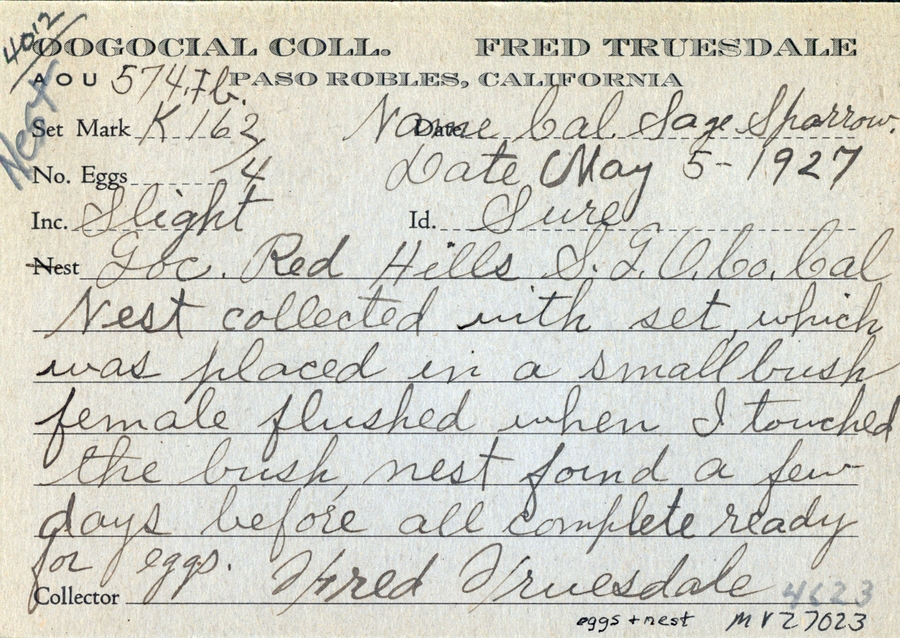 4012
Nest
OOGOCIAL COLL. FRED TRUESDALE
A O U 574.7b. PASO ROBLES, CALIFORNIA
Set Mark K 162 Name Cal. Sage Sparrow.
No. Eggs /4 Date May 5 - 1927
Inc. Slight Id. Sure
Nest Loc. Red Hills S. L. O. Co. Cal
Nest collected with set, which
was placed in a small bush
female flushed when I touched
the bush, nest foind a few
days before all complete ready
for eggs.
Collector Fred Truesdale 4623
eggs + nest MVZ 7023